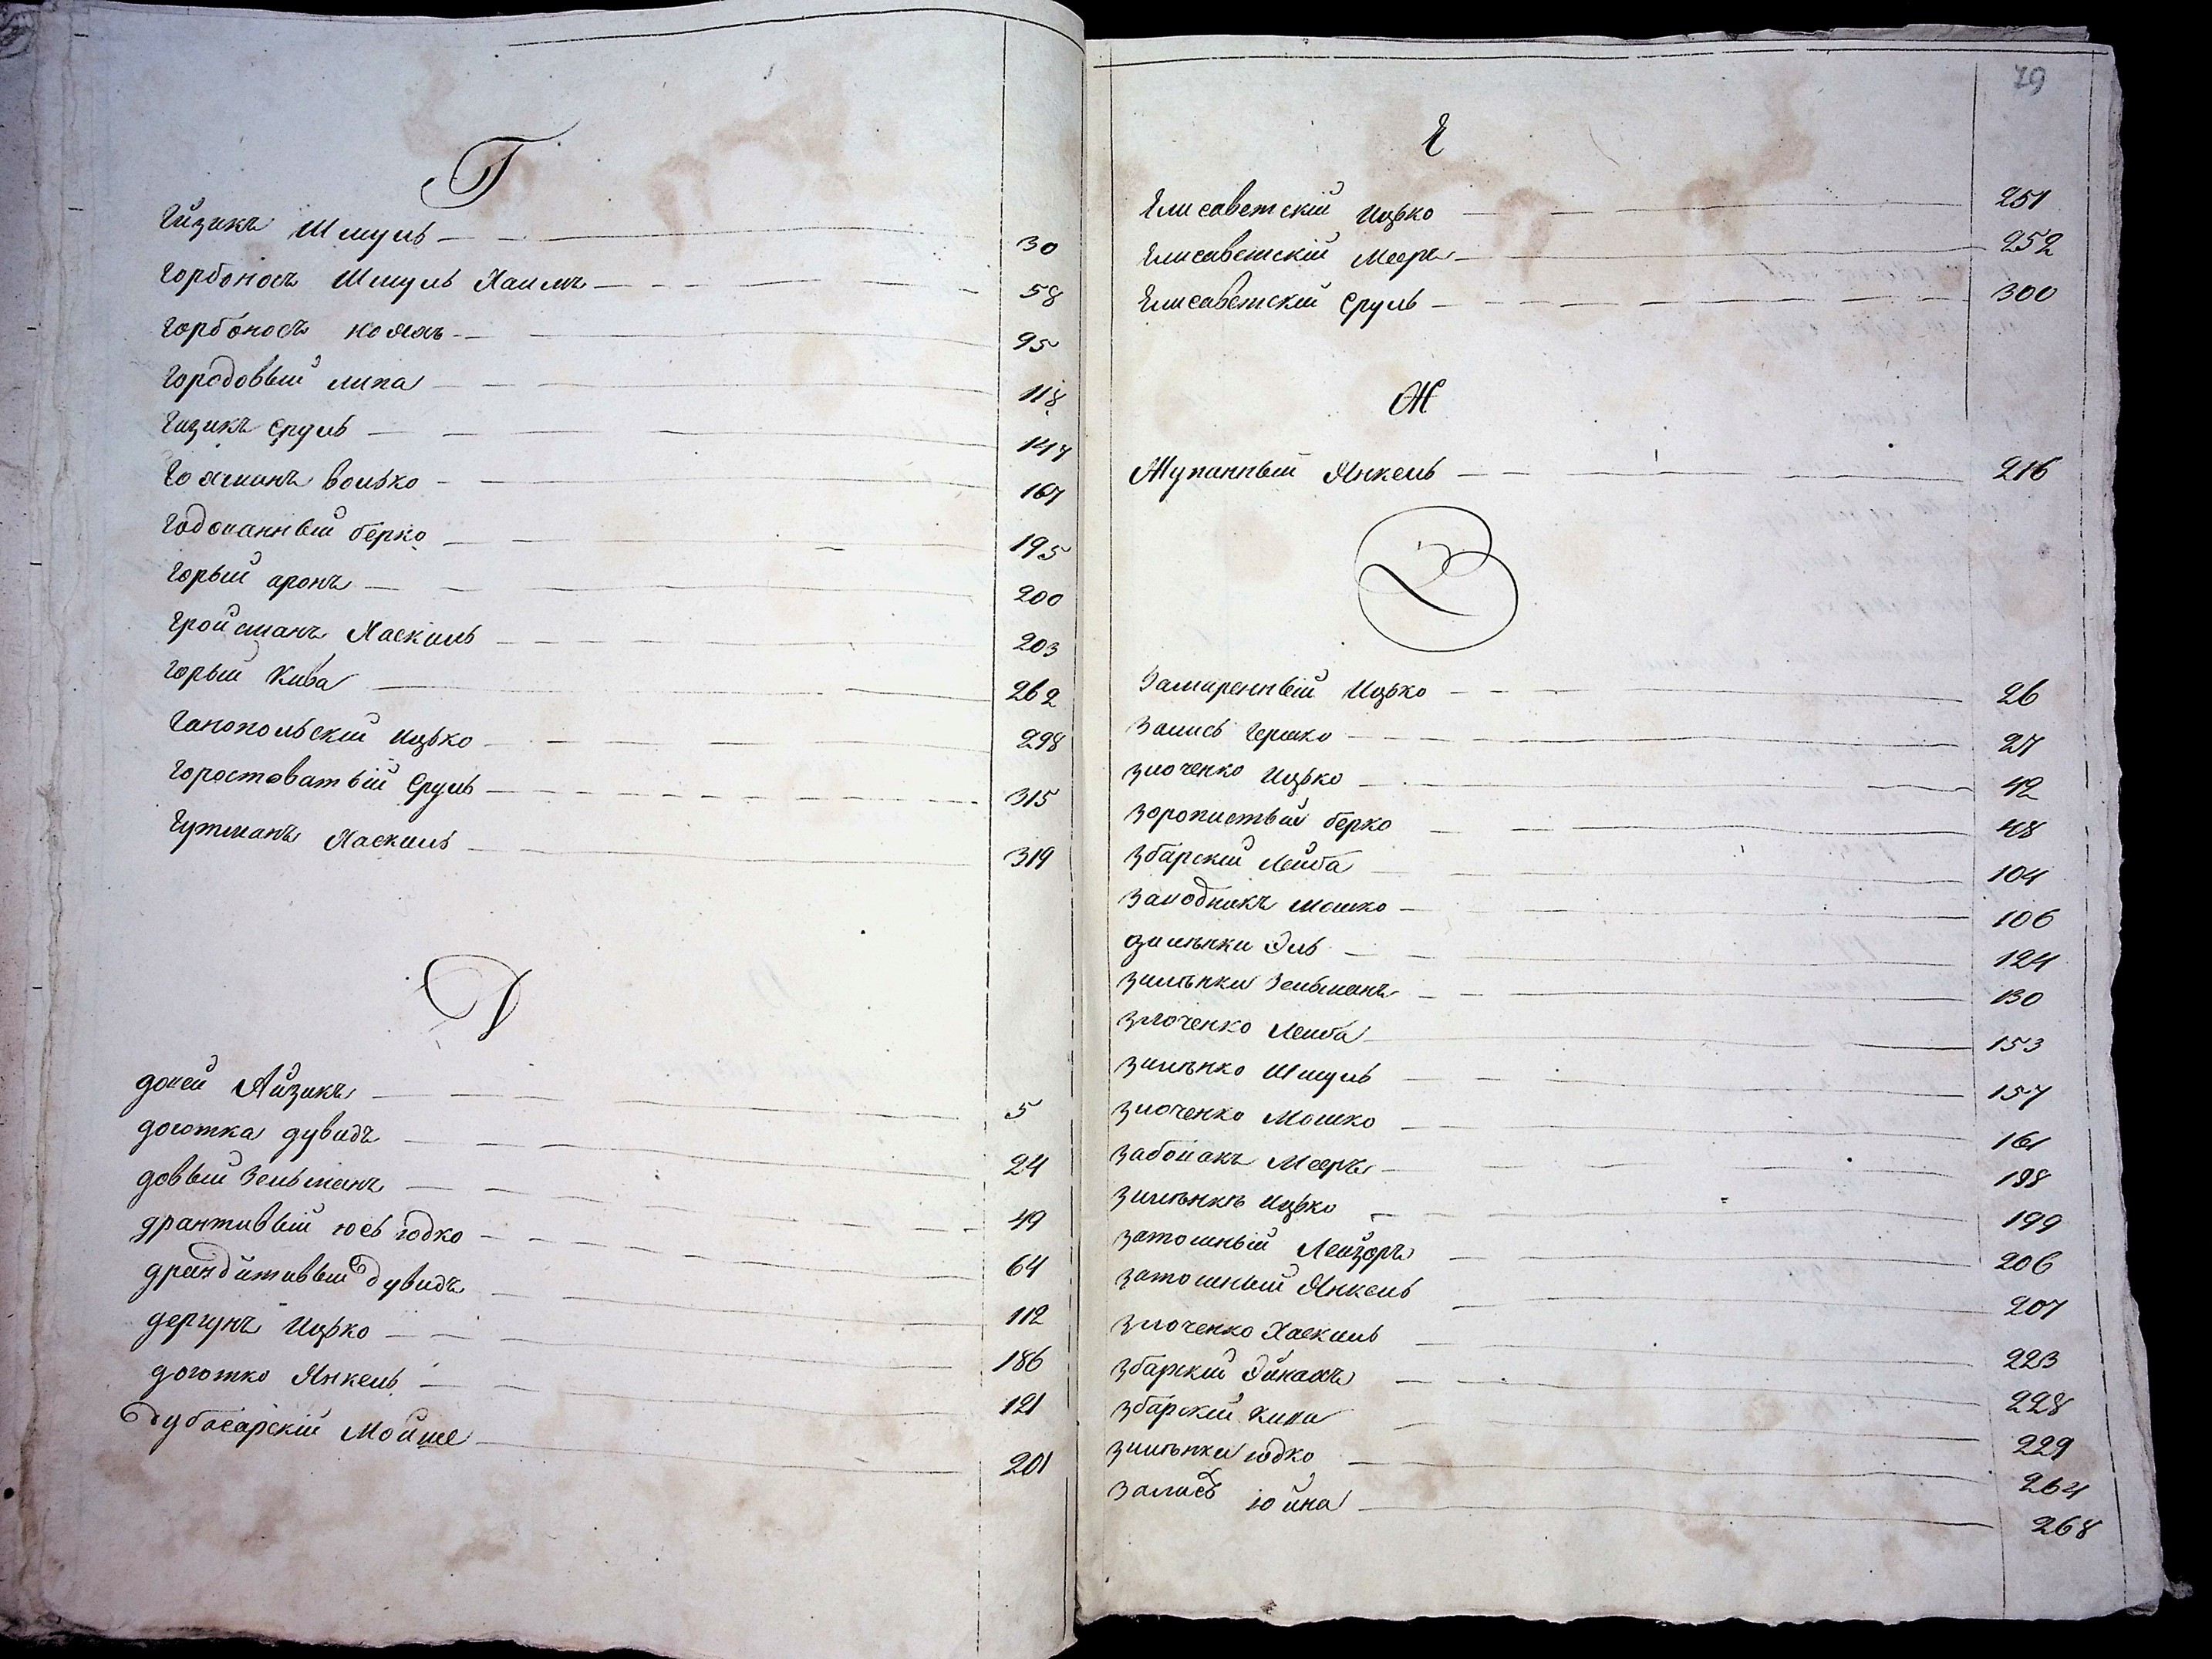 Г
Гизикъ Шмуль 30
Горбоносъ Шмуль Хаимъ 58
Горбоносъ Нояхъ 95
Городовый Липа 118
Гизикъ Сруль 147
Гохманъ Волько 167
Годованный Берко 195
Горый Аронъ 200
Гройсманъ Хаскиль 203
Горый Кива 262
Ганопольскій Ицько 298
Горостоватый Сруль 315
Гутманъ Хаскиль 319
Д
Долей Айзикъ 5
Долотка Дувидъ 24
Довый Зельманъ 49
Дрантивый Юсь Юдко 64
Дувидъ 112
Дергунъ Ицько 186
Долотко Янкель 121
Дубасарскій Мойше 201
79
Е
Елисаветскій Ицько 251
Елисаветскій Мееръ 252
Елисаветскій Сруль 300
Ж
Жупанный Янкель 216
З
Замиренный Ицько 26
Залисъ Гершко 27
Злоченко Ицько 42
Берко 48
Збарскій Лейба 104
Заводникъ Мошко 106
Зилѣнки Эль 124
Зилѣнки Зельманъ 130
Злоченко Лейба 153
Зилѣнко Шмуль 157
Злоченко Мошко 161
Заболакъ Мееръ 198
Зилѣнкѣ Ицько 199
Затошный Лейзоръ 206
Затошный Янкель 207
Злоченко Хаскиль 223
Збарскій Эйнахъ 228
Збарскій 229
Зилѣнки Юдко 264
Залисъ Юйна 268